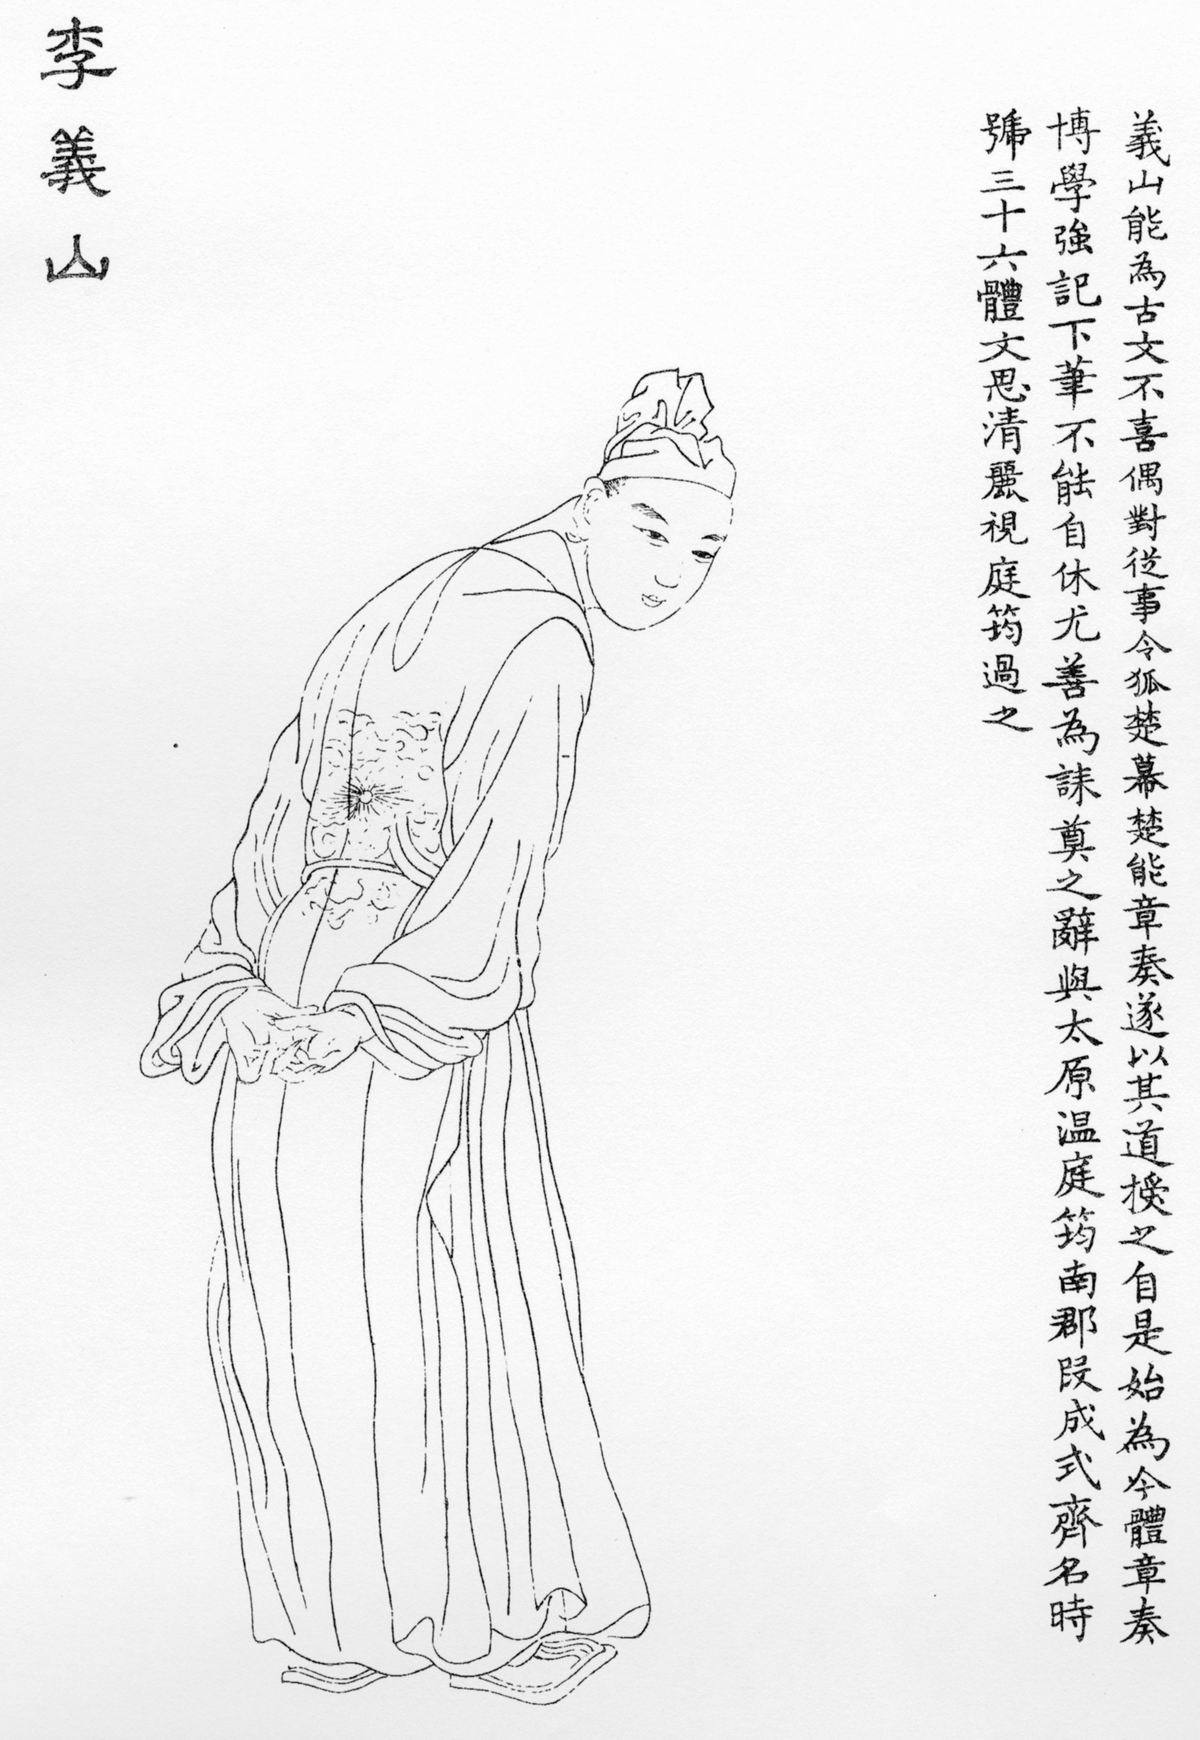 義山能為古文不喜偶對從事令狐楚幕楚能章奏遂以其道授之自是始為今體章奏
博學強記下筆不能自休尤善為誄奠之辭與太原温庭筠南郡段成式齊名時
號三十六體文思清麗視庭筠過之
李義山